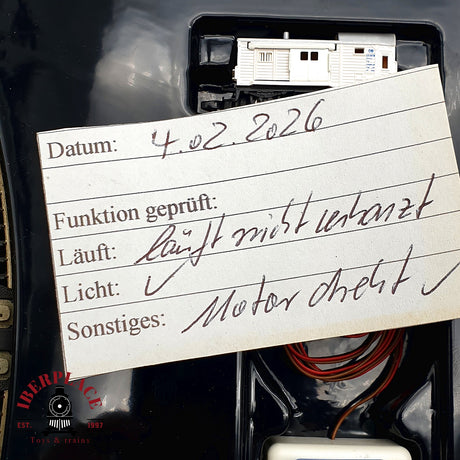 Datum: 4.02.2026
Funktion geprüft:
Läuft: läuft nicht verharzt
Licht: ✓
Sonstiges: Motor dreht ✓
IBERPLACE
EST. 1997
Toys & trains